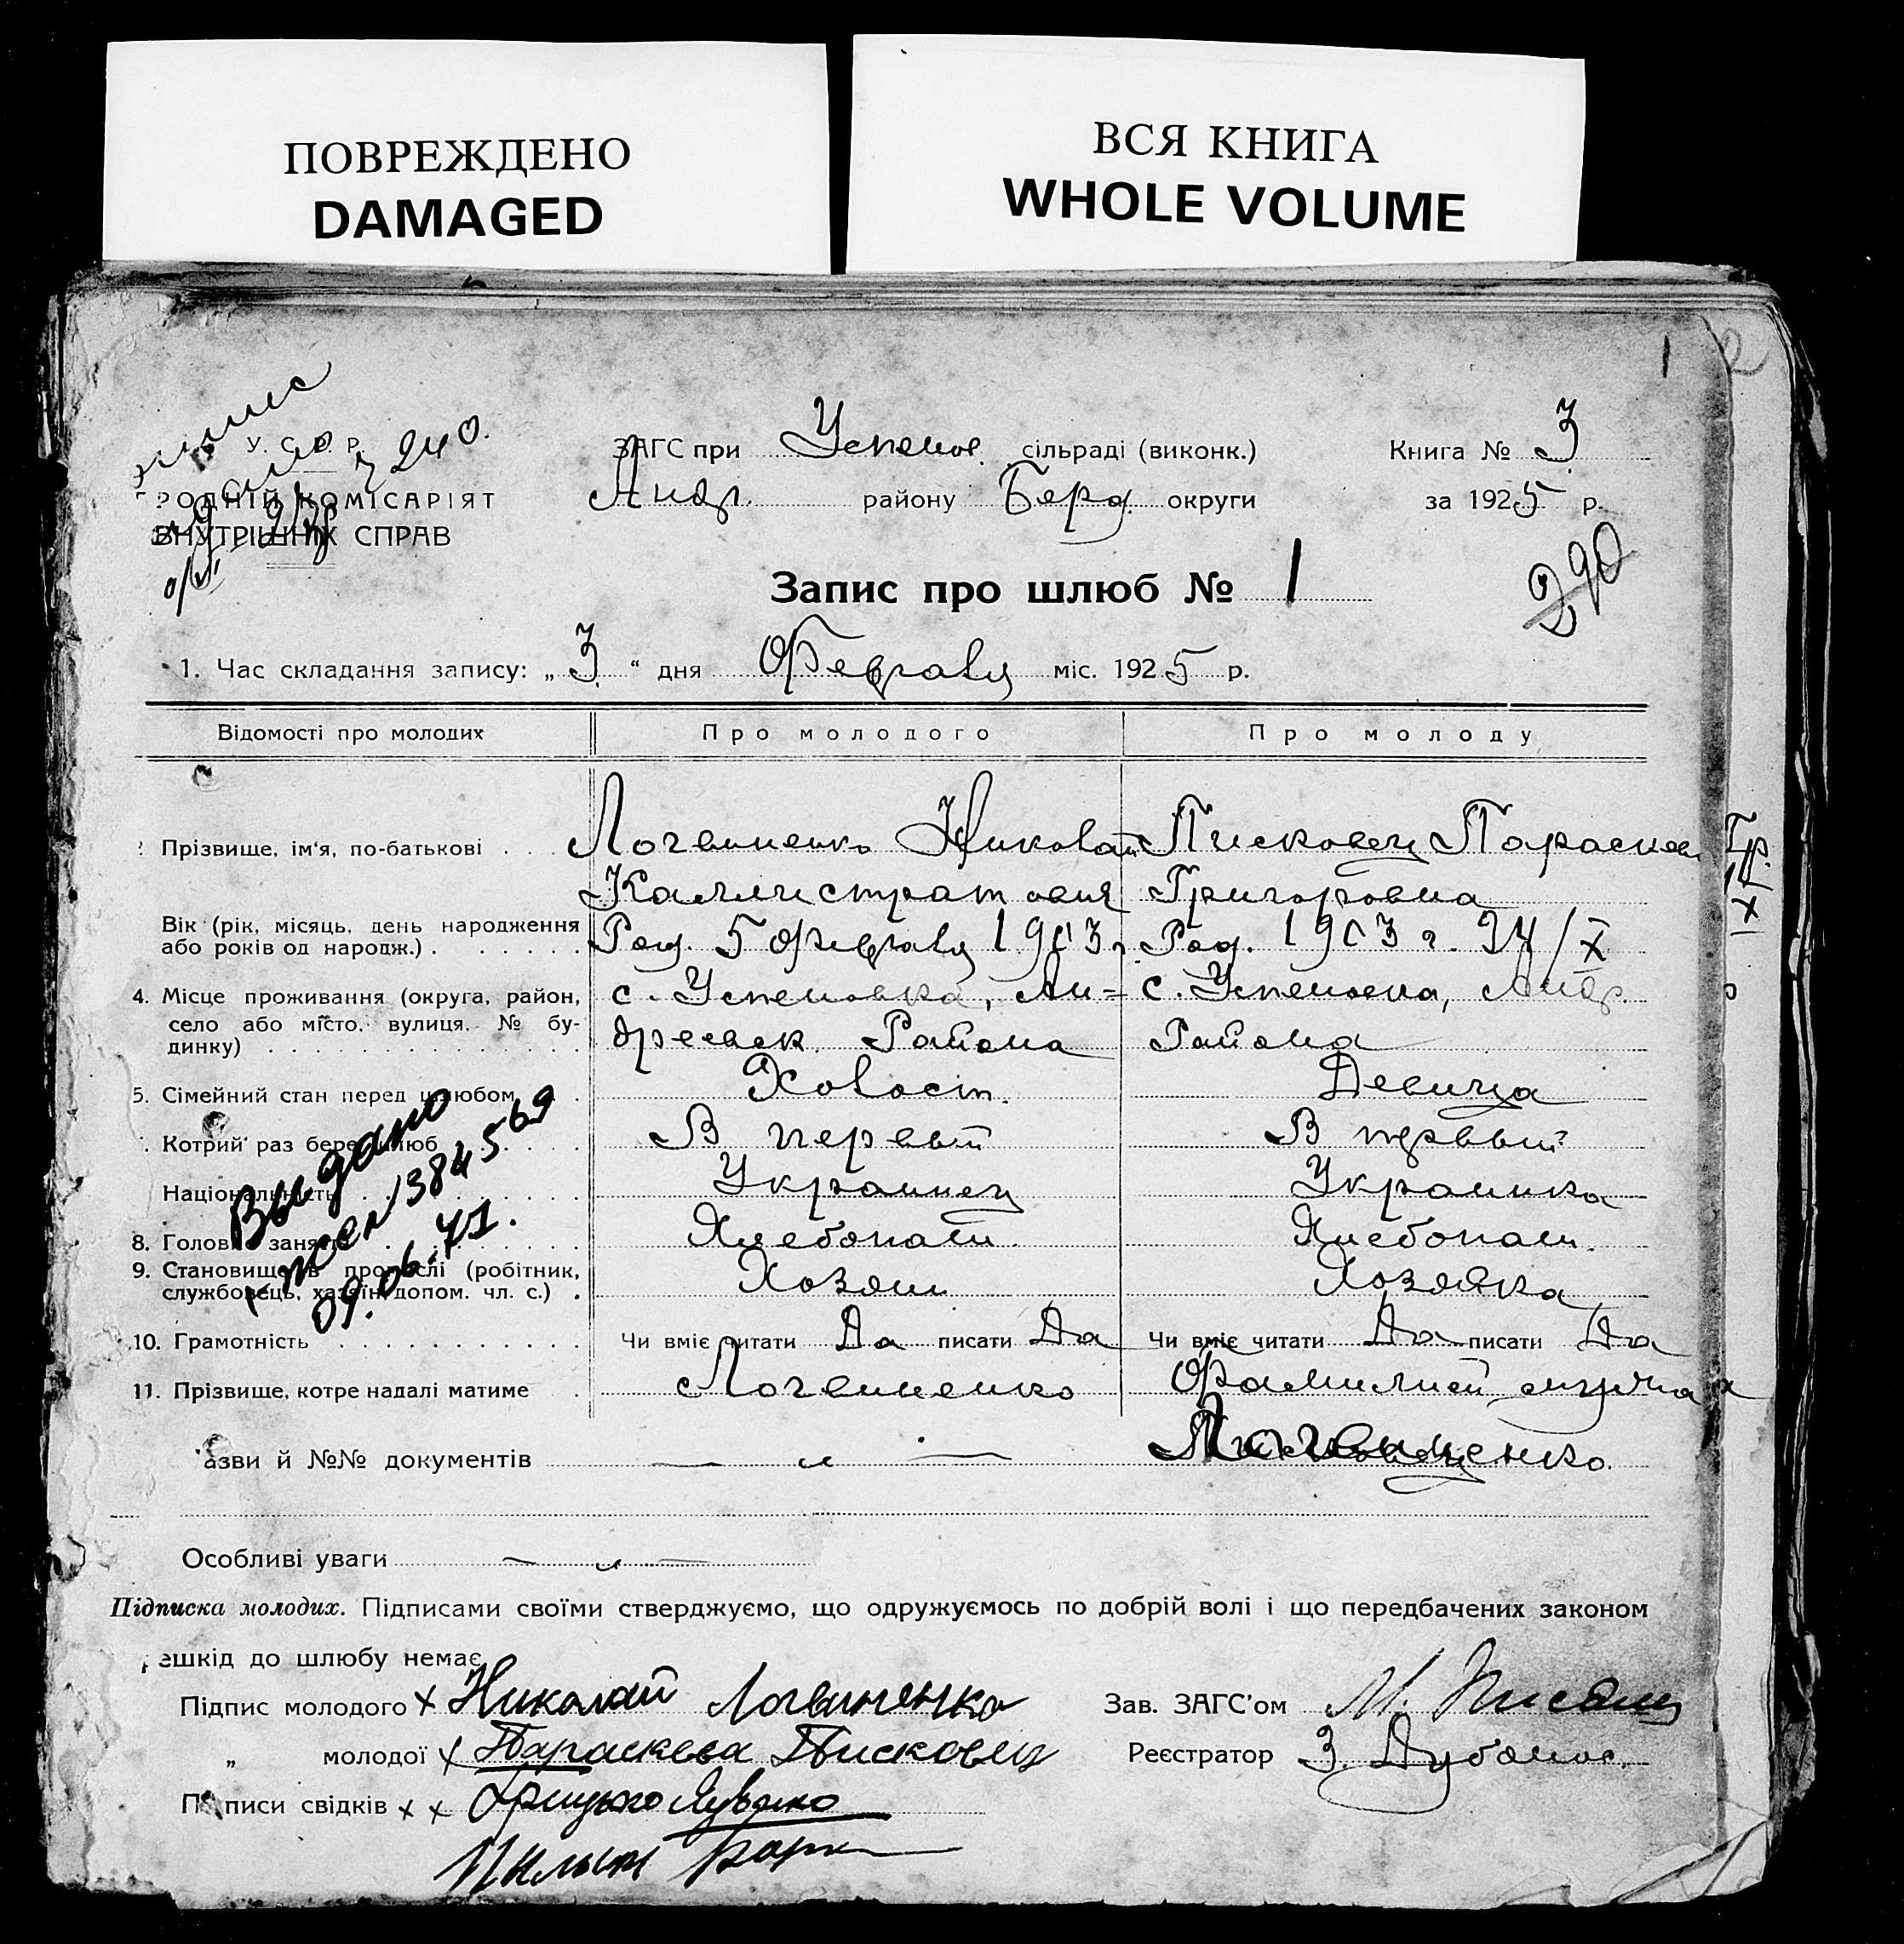 ПОВРЕЖДЕНО
DAMAGED
ВСЯ КНИГА
WHOLE VOLUME
1
У. С. Р. Р.
РОДНІЙ КОМІСАРІЯТ
ВНУТРІШНІХ СПРАВ
ЗАГС при Успенов. сільраді (виконк.)
Андр. району Берд. округи
Книга № 3
за 1925 р.
290
Запис про шлюб № 1
1. Час складання запису: „3“ дня Февраля міс. 1925 р.
Відомості про молодих Про молодого Про молоду
Прізвище, ім'я, по-батькові . . . Логвиненко Николай Писковец Параскев
Каллистратович Григоровна
Вік (рік, місяць, день народження або років од народж.) . . . . . Род. 5 февраля 1903 г. Род. 1903 г. /X
4. Місце проживання (округа, район, с. Успеновка, Ан= с. Успеновка, Андр.
село або місто, вулиця, № бу-
динку) . . . . . . . . . . . . . дреевск. Района Района
5. Сімейний стан перед шлюбом . . Холост. Девица
Котрий раз бере шлюб . . . . В первый В первый
Національність . . . . . . . . . Украинец Украинка
8. Головне заняття . . . . . . . . Хлебопаш. Хлебопаш.
9. Становище в промислі (робітник, службовець, хазяїн, допом. чл. с.) . Хозяин Хозяйка
10. Грамотність . . . . . . . . . . . Чи вміє читати Да писати Да Чи вміє читати Да писати Да
11. Прізвище, котре надалі матиме . Логвиненко Фамилией мужа
Логвиненко.
Выдано
09.06.71.
азви й №№ документів — „ —
Особливі уваги — „ —
Підписка молодих. Підписами своїми стверджуємо, що одружуємось по добрій волі і що передбачених законом
ешкід до шлюбу немає
Підпис молодого х Николай Логвиненко Зав. ЗАГС'ом М.
„ молодої х Параскева Писковец Реєстратор З.
Підписи свідків х х Грицько